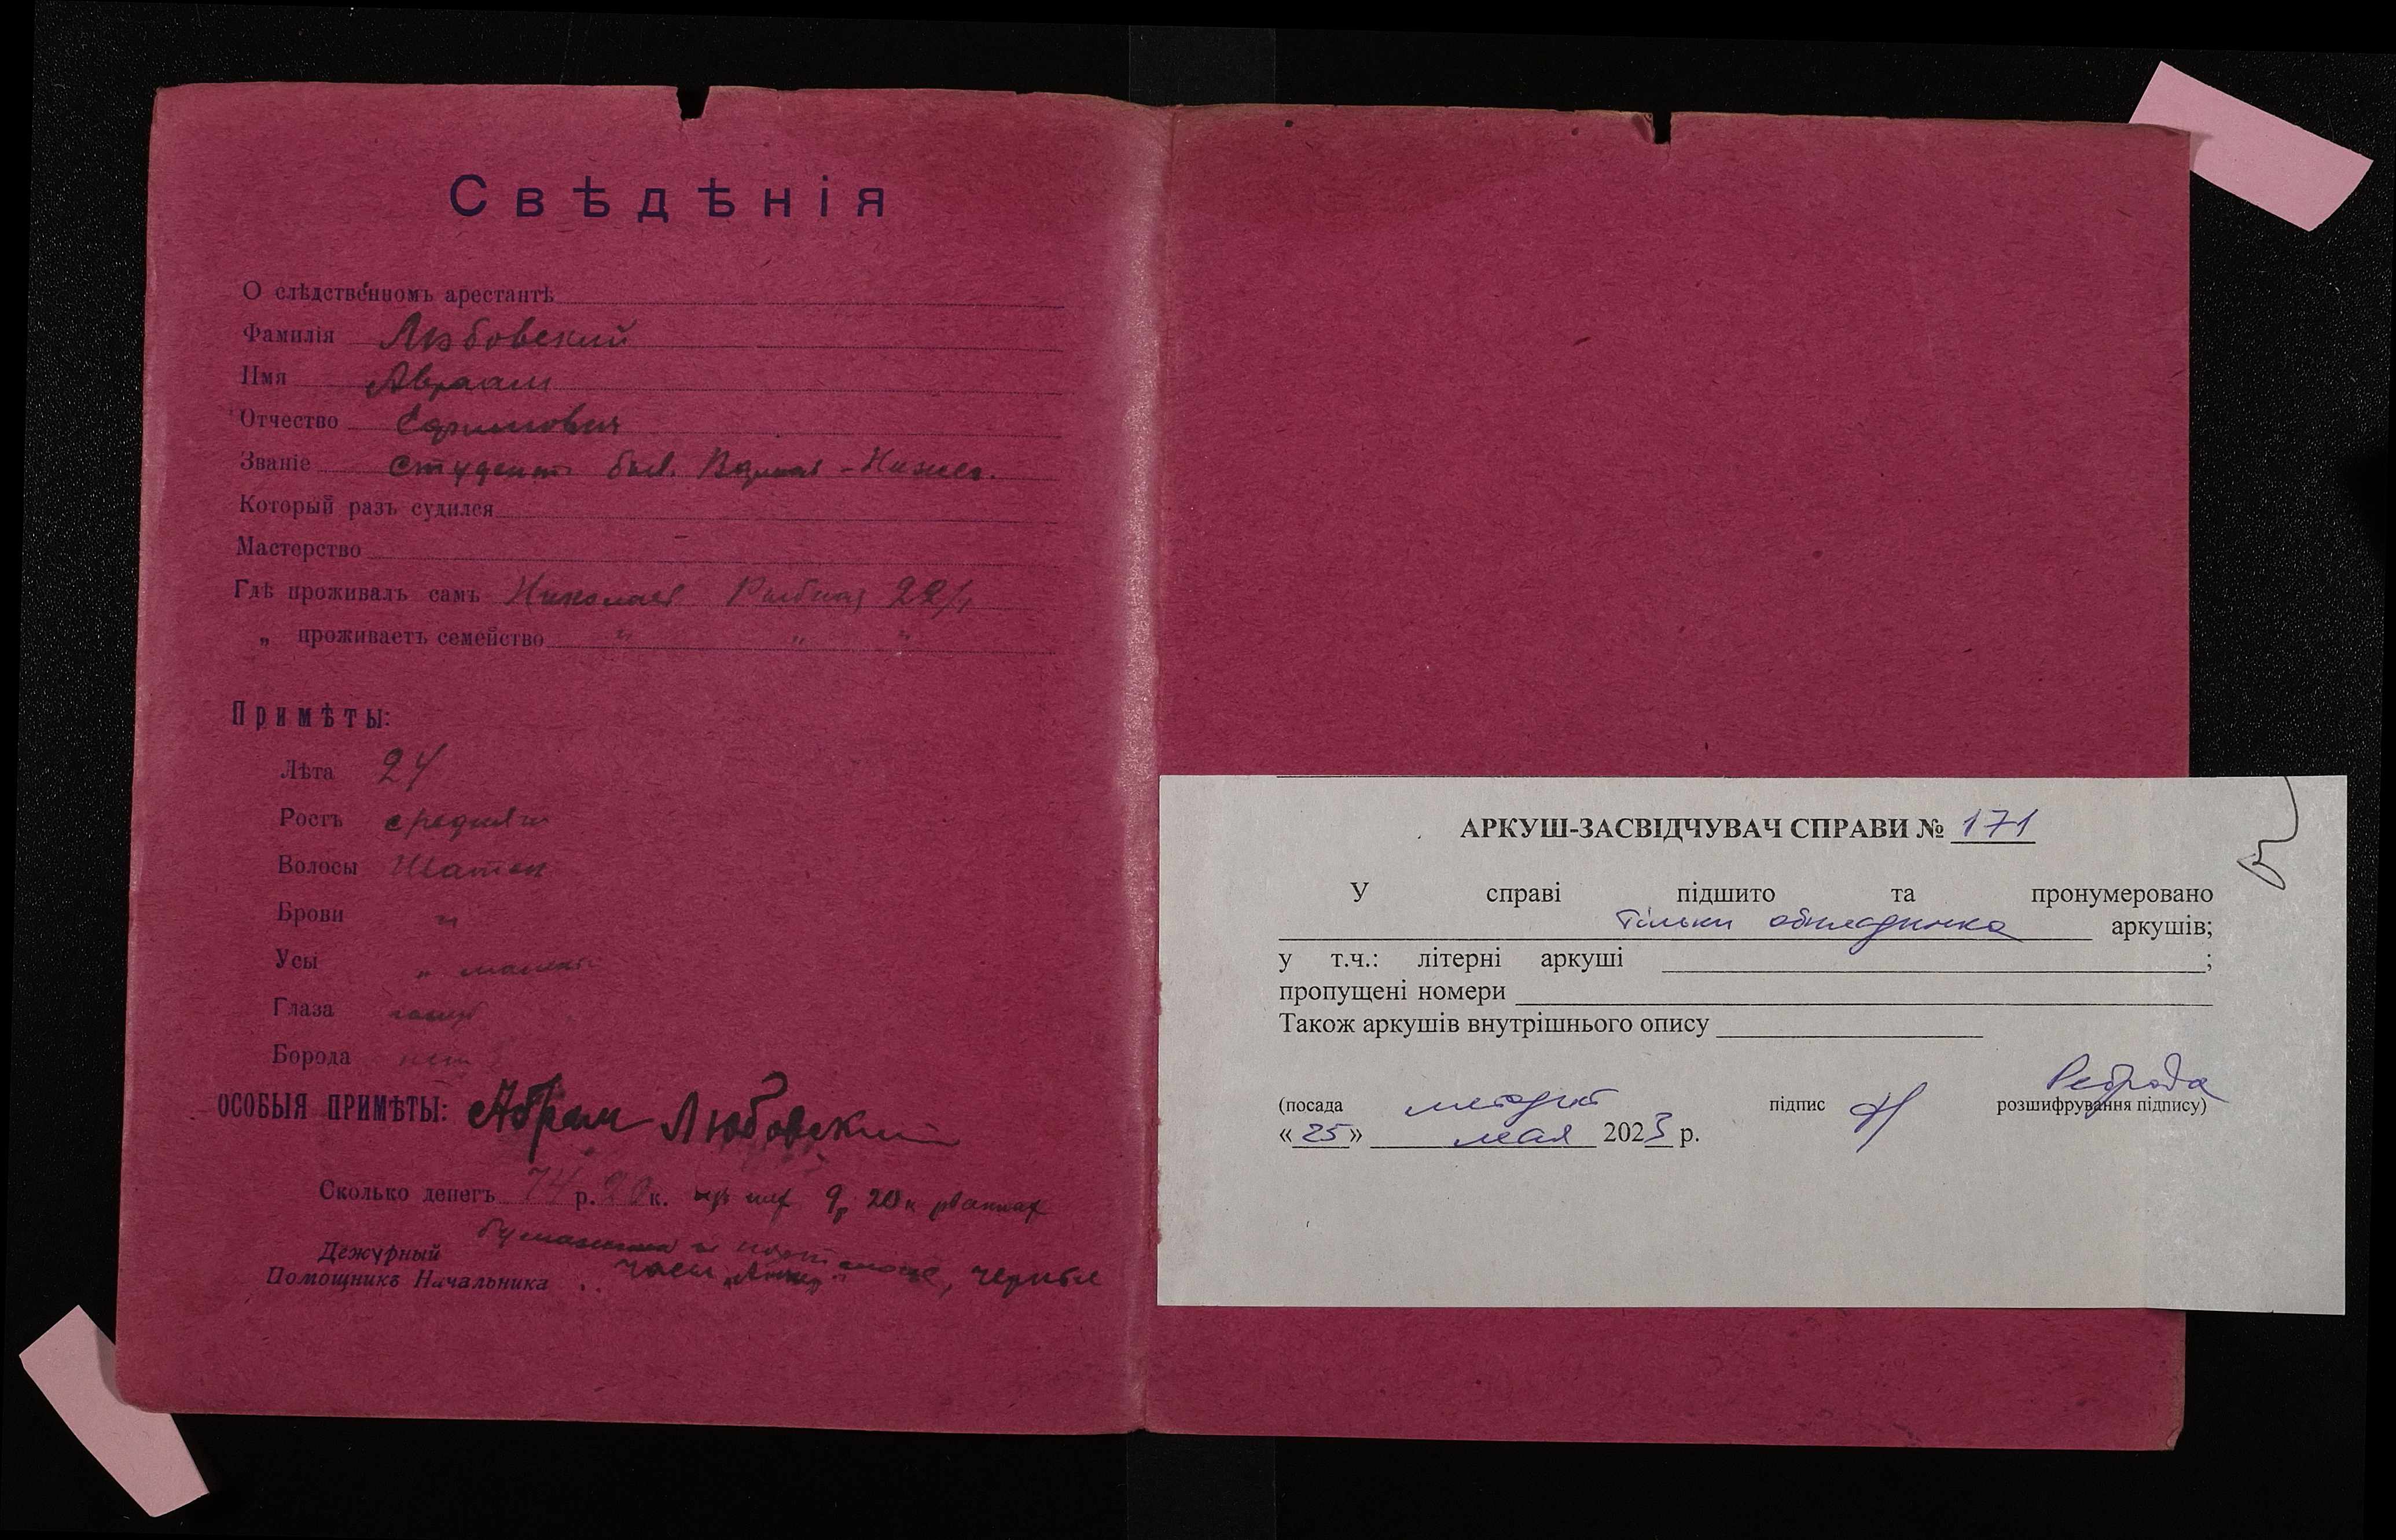 Свѣдѣнія
О слѣдственномъ арестантѣ
Фамилія Любовский
Имя Авраам
Отчество Ефимович
Званіе студент был.
Который разъ судился
Мастерство
Гдѣ проживалъ самъ Николаев Рыбная 22/1
„ проживаетъ семейство " " "
Примѣты:
Лѣта 24
Ростъ средний
Волосы Шатен
Брови "
Усы "
Глаза
Борода нет
ОСОБЫЯ ПРИМѢТЫ: Абрам Любовский
Сколько денегъ 74 р. 20 к. 9 р 20 к
Дежурный
Помощникъ Начальника . . часы
АРКУШ-ЗАСВІДЧУВАЧ СПРАВИ № 171
У справі підшито та пронумеровано
тільки обкладинка аркушів;
у т.ч.: літерні аркуші ;
пропущені номери
Також аркушів внутрішнього опису
Реброва
(посада методист підпис розшифрування підпису)
« 25 » мая 2023 р.